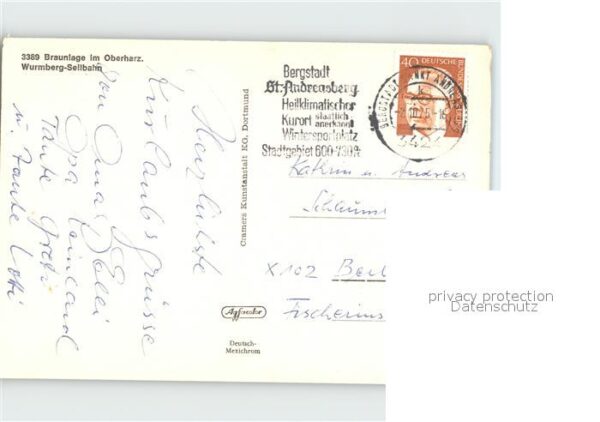 3389 Braunlage im Oberharz.
Wurmberg-Seilbahn
Herzlichste
Urlaubsgrüsse
von Oma Elli
Opa Reinhard
Tante Grete
u. Tante Lotti
Cramers Kunstanstalt KG, Dortmund
Agfacolor
Deutsch-
Mexichrom
Bergstadt
St. Andreasberg
Heilklimatischer
Kurort staatlich
anerkannt
Wintersportplatz
Stadtgebiet 600-730 m
40 DEUTSCHE BUNDES
BERGSTADT SANKT ANDREASBERG
3424
Kathrin u. Andreas
X 102 Berl
Fischerins
privacy protection
Datenschutz